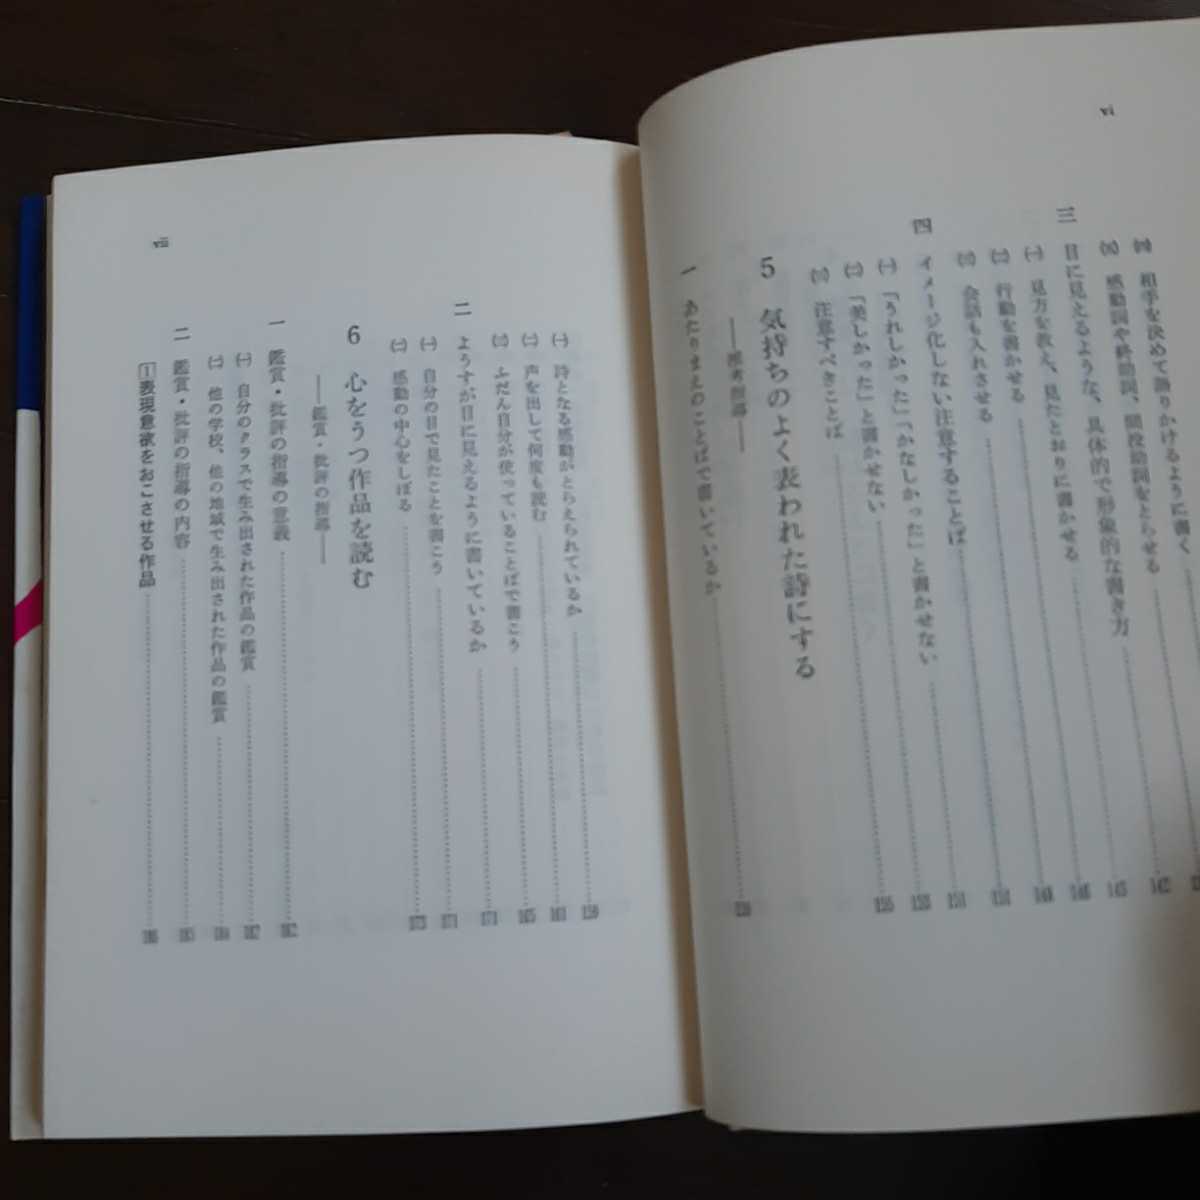 vi
相手を決めて語りかけるように書く
感動詞や終助詞、間投助詞をとらせる 142
三 目に見えるような、具体的で形象的な書き方 145
㈠ 見方を教え、見たとおりに書かせる 146
㈡ 行動を書かせる 148
㈢ 会話も入れさせる 151
四 イメージ化しない注意することば 151
㈠ 「うれしかった」「かなしかった」と書かせない 153
㈡ 「美しかった」と書かせない 155
㈢ 注意すべきことば
5 気持ちのよく表われた詩にする
――推考指導――
一 あたりまえのことばで書いているか 159
vii
㈠ 詩となる感動がとらえられているか 159
㈡ 声を出して何度も読む 161
㈢ ふだん自分が使っていることばで書こう 165
二 ようすが目に見えるように書いているか 171
㈠ 自分の目で見たことを書こう 171
㈡ 感動の中心をしぼる 175
6 心をうつ作品を読む
――鑑賞・批評の指導――
一 鑑賞・批評の指導の意義 182
㈠ 自分のクラスで生み出された作品の鑑賞 182
㈡ 他の学校、他の地域で生み出された作品の鑑賞 184
二 鑑賞・批評の指導の内容 185
1 表現意欲をおこさせる作品 186